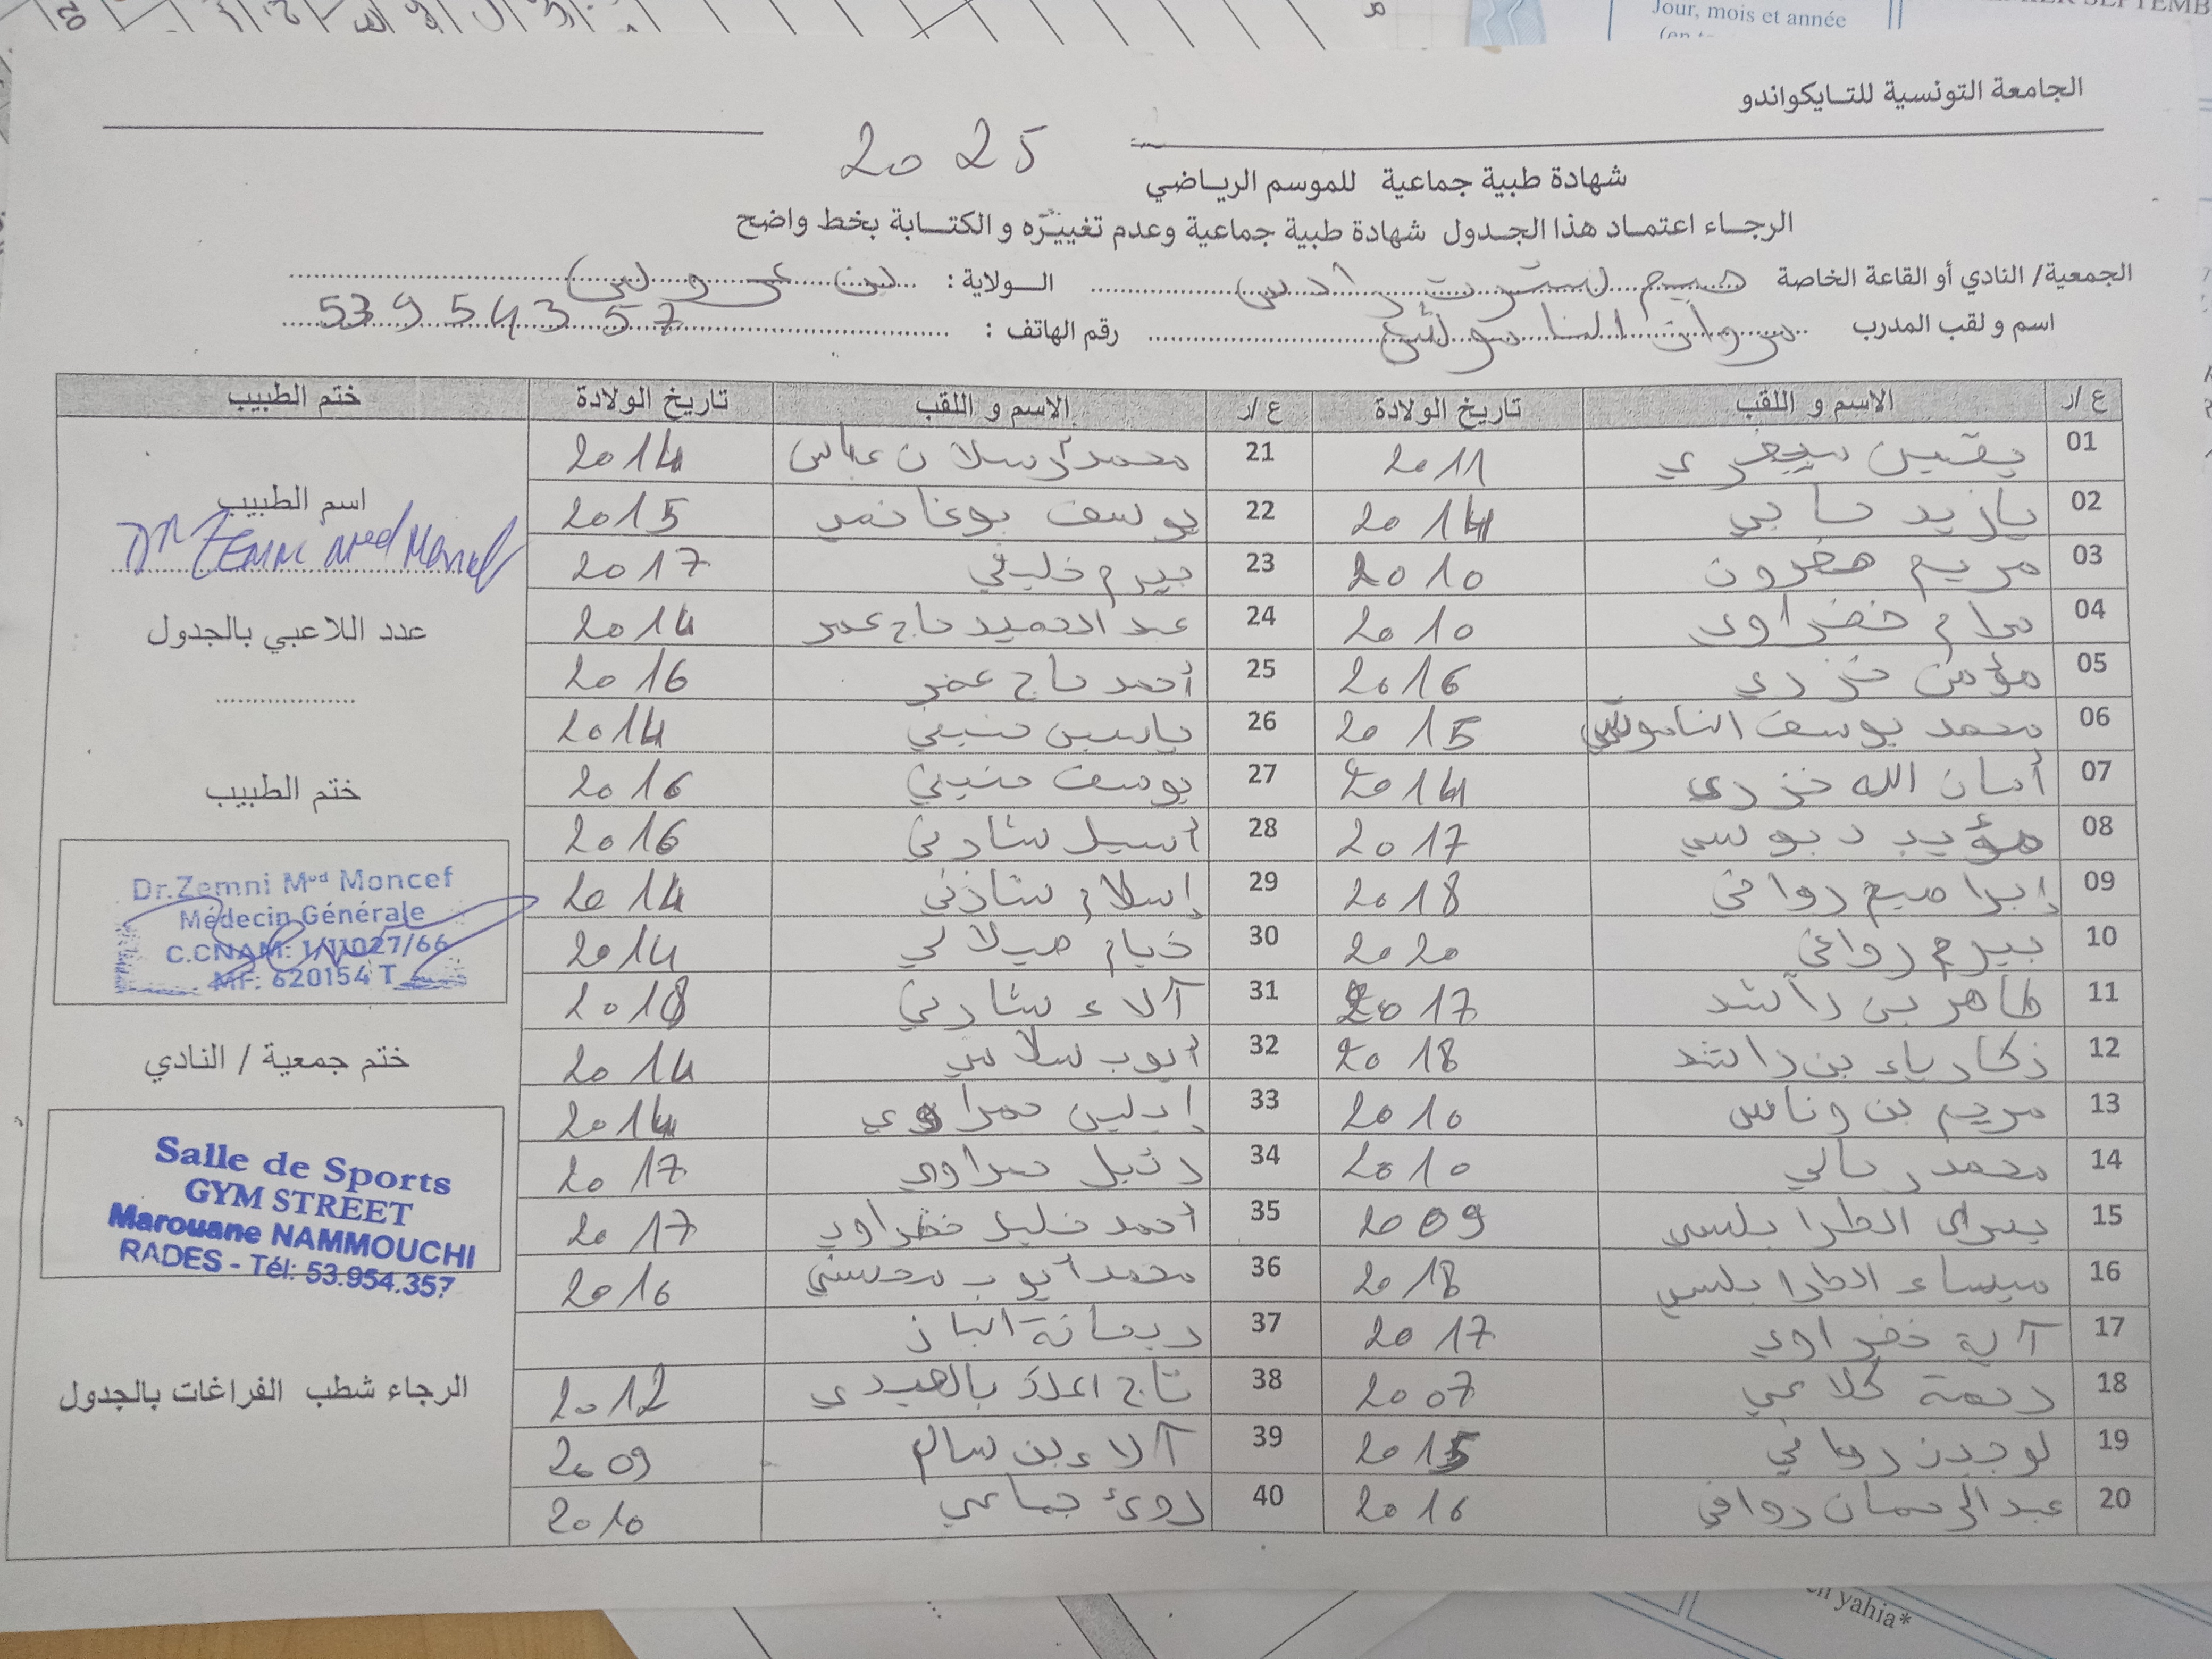 Jour, mois et année
الجامعة التونسية للتايكواندو
2025
شهادة طبية جماعية للموسم الرياضي
الرجاء اعتماد هذا الجدول شهادة طبية جماعية وعدم تغييره و الكتابة بخط واضح
الجمعية/ النادي أو القاعة الخاصة جيم ستريت رادس الولاية : بن عروس
اسم و لقب المدرب مروان الناموشي رقم الهاتف : 53954357
ع /ر الاسم و اللقب تاريخ الولادة ع /ر الاسم و اللقب تاريخ الولادة ختم الطبيب
01 يقين 2011 21 محمد أرسلان عباس 2014
02 يازيد حاجي 2014 22 يوسف بوغانمي 2015
03 مريم 2010 23 بيرم خليفي 2017
04 مرام خضراوي 2010 24 عبد الحميد حاج عمر 2014
05 مؤمن خزري 2016 25 أحمد حاج عمر 2016
06 محمد يوسف الناموشي 2015 26 ياسين حنيني 2014
07 أمان الله خزري 2014 27 يوسف حنيني 2016
08 مؤيد دبوسي 2017 28 أسيل شاذني 2016
09 إبراهيم روافي 2018 29 إسلام شاذني 2014
10 بيرم روافي 2020 30 خيام جيلالي 2014
11 طاهر بن راشد 2017 31 آلاء شارني 2018
12 زكارياء بن راشد 2018 32 أيوب سلامي 2014
13 مريم بن وناس 2010 33 إدليس حمراوي 2014
14 محمد رحالي 2010 34 2017
15 يسرى الطرابلسي 2009 35 أحمد خليل خضراوي 2017
16 ميساء الطرابلسي 2018 36 محمد أيوب محسني 2016
17 آية خضراوي 2017 37 ريحانة الباز
18 رحمة كلاعي 2007 38 تاج 2012
19 لوجين روافي 2015 39 آلاء بن سالم 2009
20 عبد الرحمان روافي 2016 40 روئ جماعي 2010
اسم الطبيب
Dr ZEMNI Med Moncef
عدد اللاعبي بالجدول
ختم الطبيب
Dr.Zemni Med Moncef
Médecin Générale
C.CNAM: 1/11027/66
MF: 620154 T
ختم جمعية / النادي
Salle de Sports
GYM STREET
Marouane NAMMOUCHI
RADES - Tél: 53.954.357
الرجاء شطب الفراغات بالجدول
en yahia*